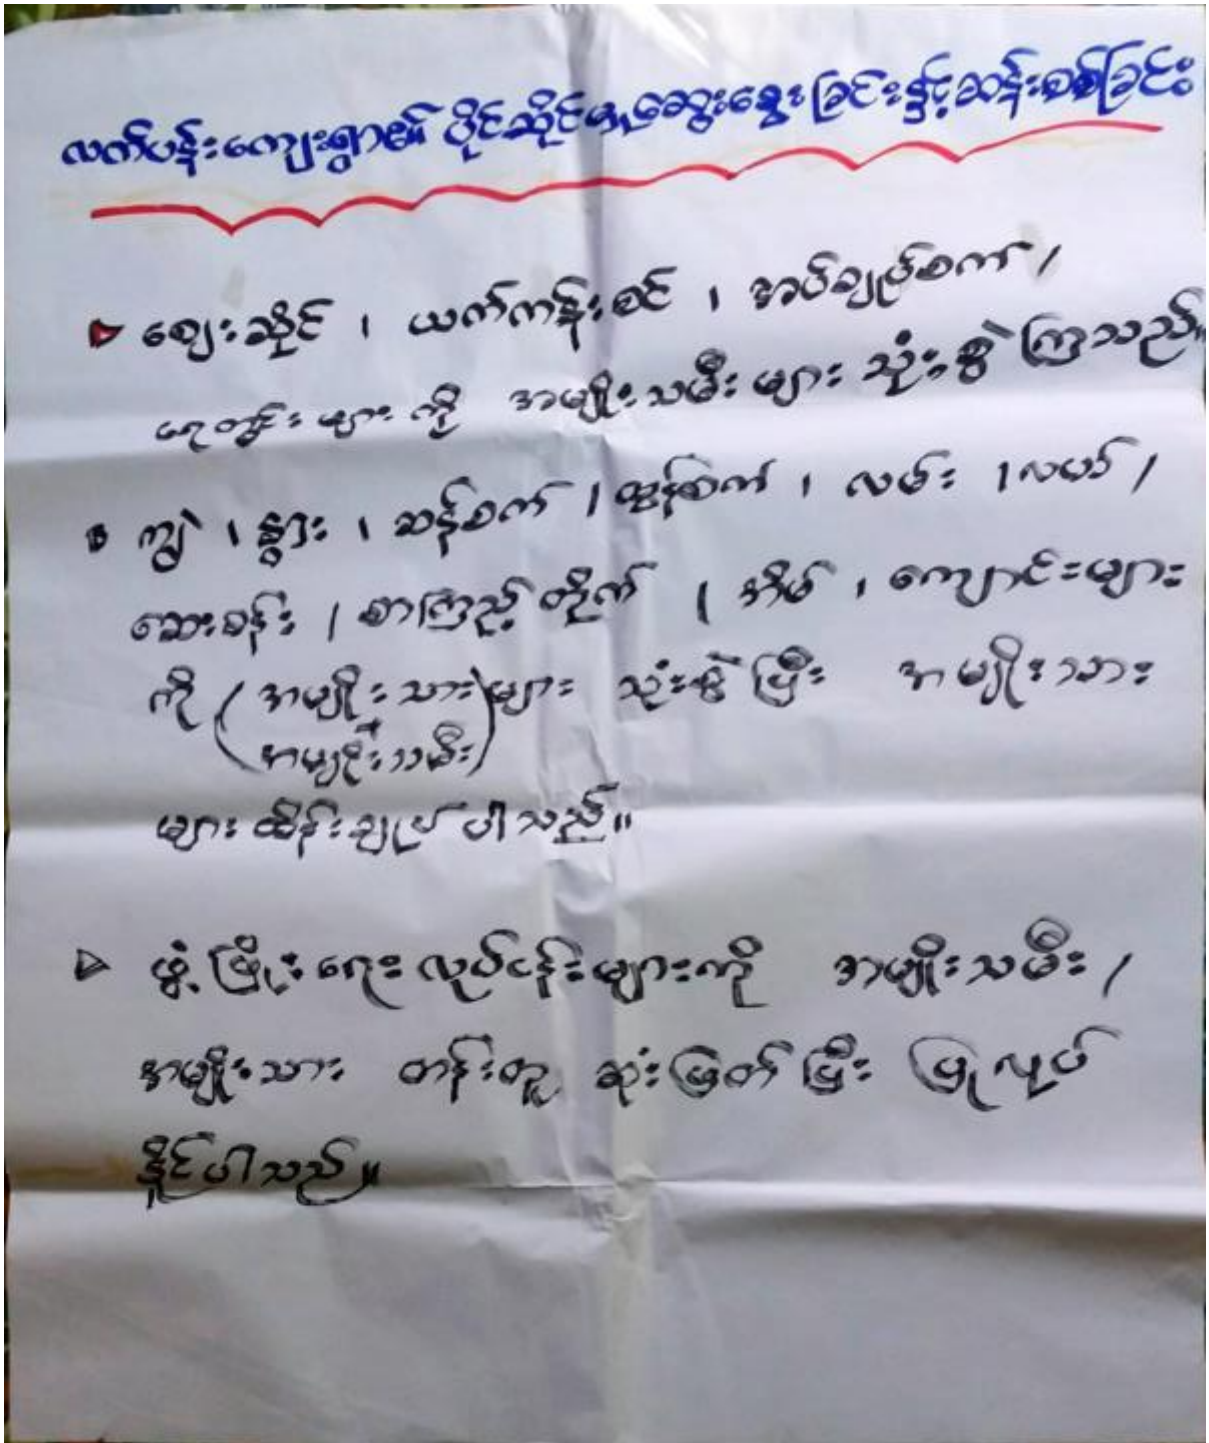 လက်ပန်းကျေးရွာ၏ ပိုင်ဆိုင်မှုဆွေးနွေးခြင်းနှင့်ဆန်းစစ်ခြင်း
ဈေးဆိုင် ၊ ယက်ကန်းစင် ၊ အပ်ချုပ်စက် ၊
ရေတွင်းများကို အမျိုးသမီးများ သုံးစွဲကြသည်။
ကျွဲ ၊ နွား ၊ ဆန်စက် ၊ ထွန်စက် ၊ လမ်း ၊ လယ် ၊
ဆေးခန်း ၊ စာကြည့်တိုက် ၊ အိမ် ၊ ကျောင်းများ
ကို (အမျိုးသား)များ သုံးစွဲပြီး အမျိုးသား
(အမျိုးသမီး)
များ ထိန်းချုပ်ပါသည်။
ဖွံ့ဖြိုးရေးလုပ်ငန်းများကို အမျိုးသမီး ၊
အမျိုးသား တန်းတူ ဆုံးဖြတ်ပြီး ပြုလုပ်
နိုင်ပါသည်။